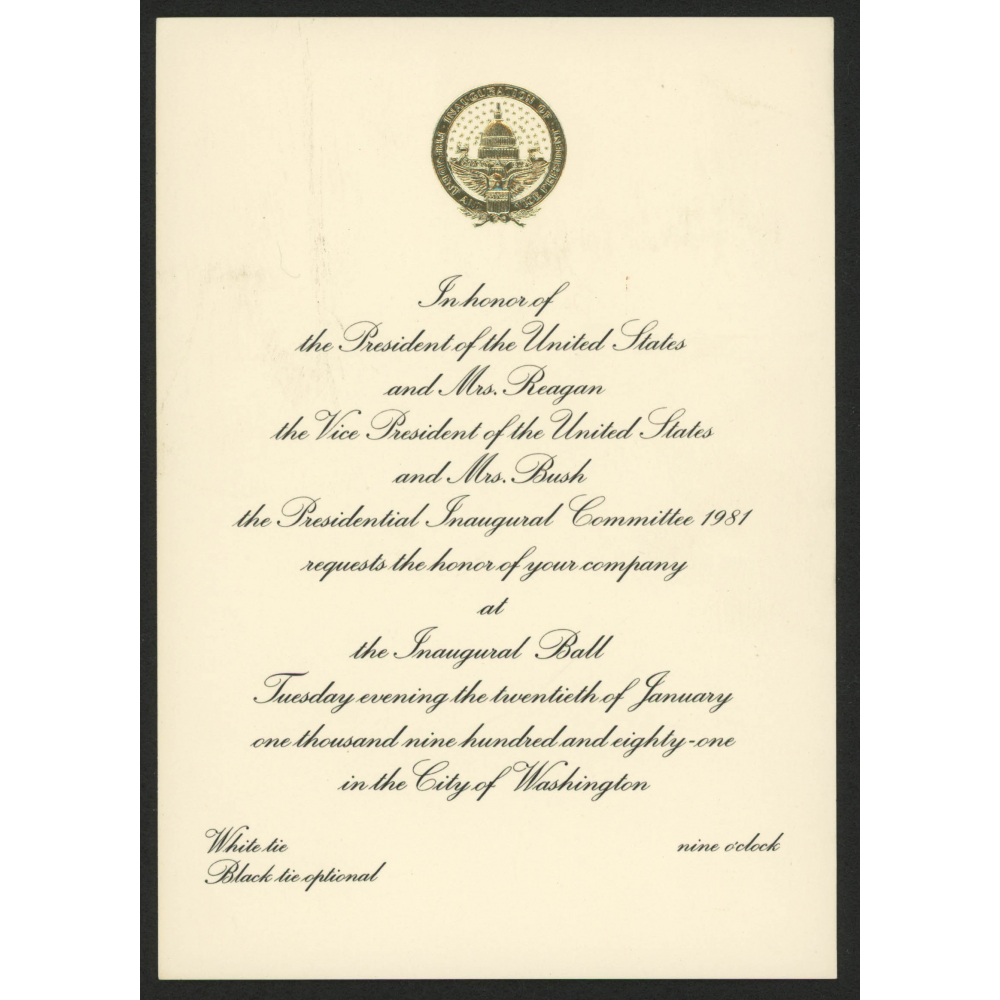 INAUGURATION OF
In honor of
the President of the United States
and Mrs. Reagan
the Vice President of the United States
and Mrs. Bush
the Presidential Inaugural Committee 1981
requests the honor of your company
at
the Inaugural Ball
Tuesday evening the twentieth of January
one thousand nine hundred and eighty-one
in the City of Washington
White tie
Black tie optional
nine o'clock